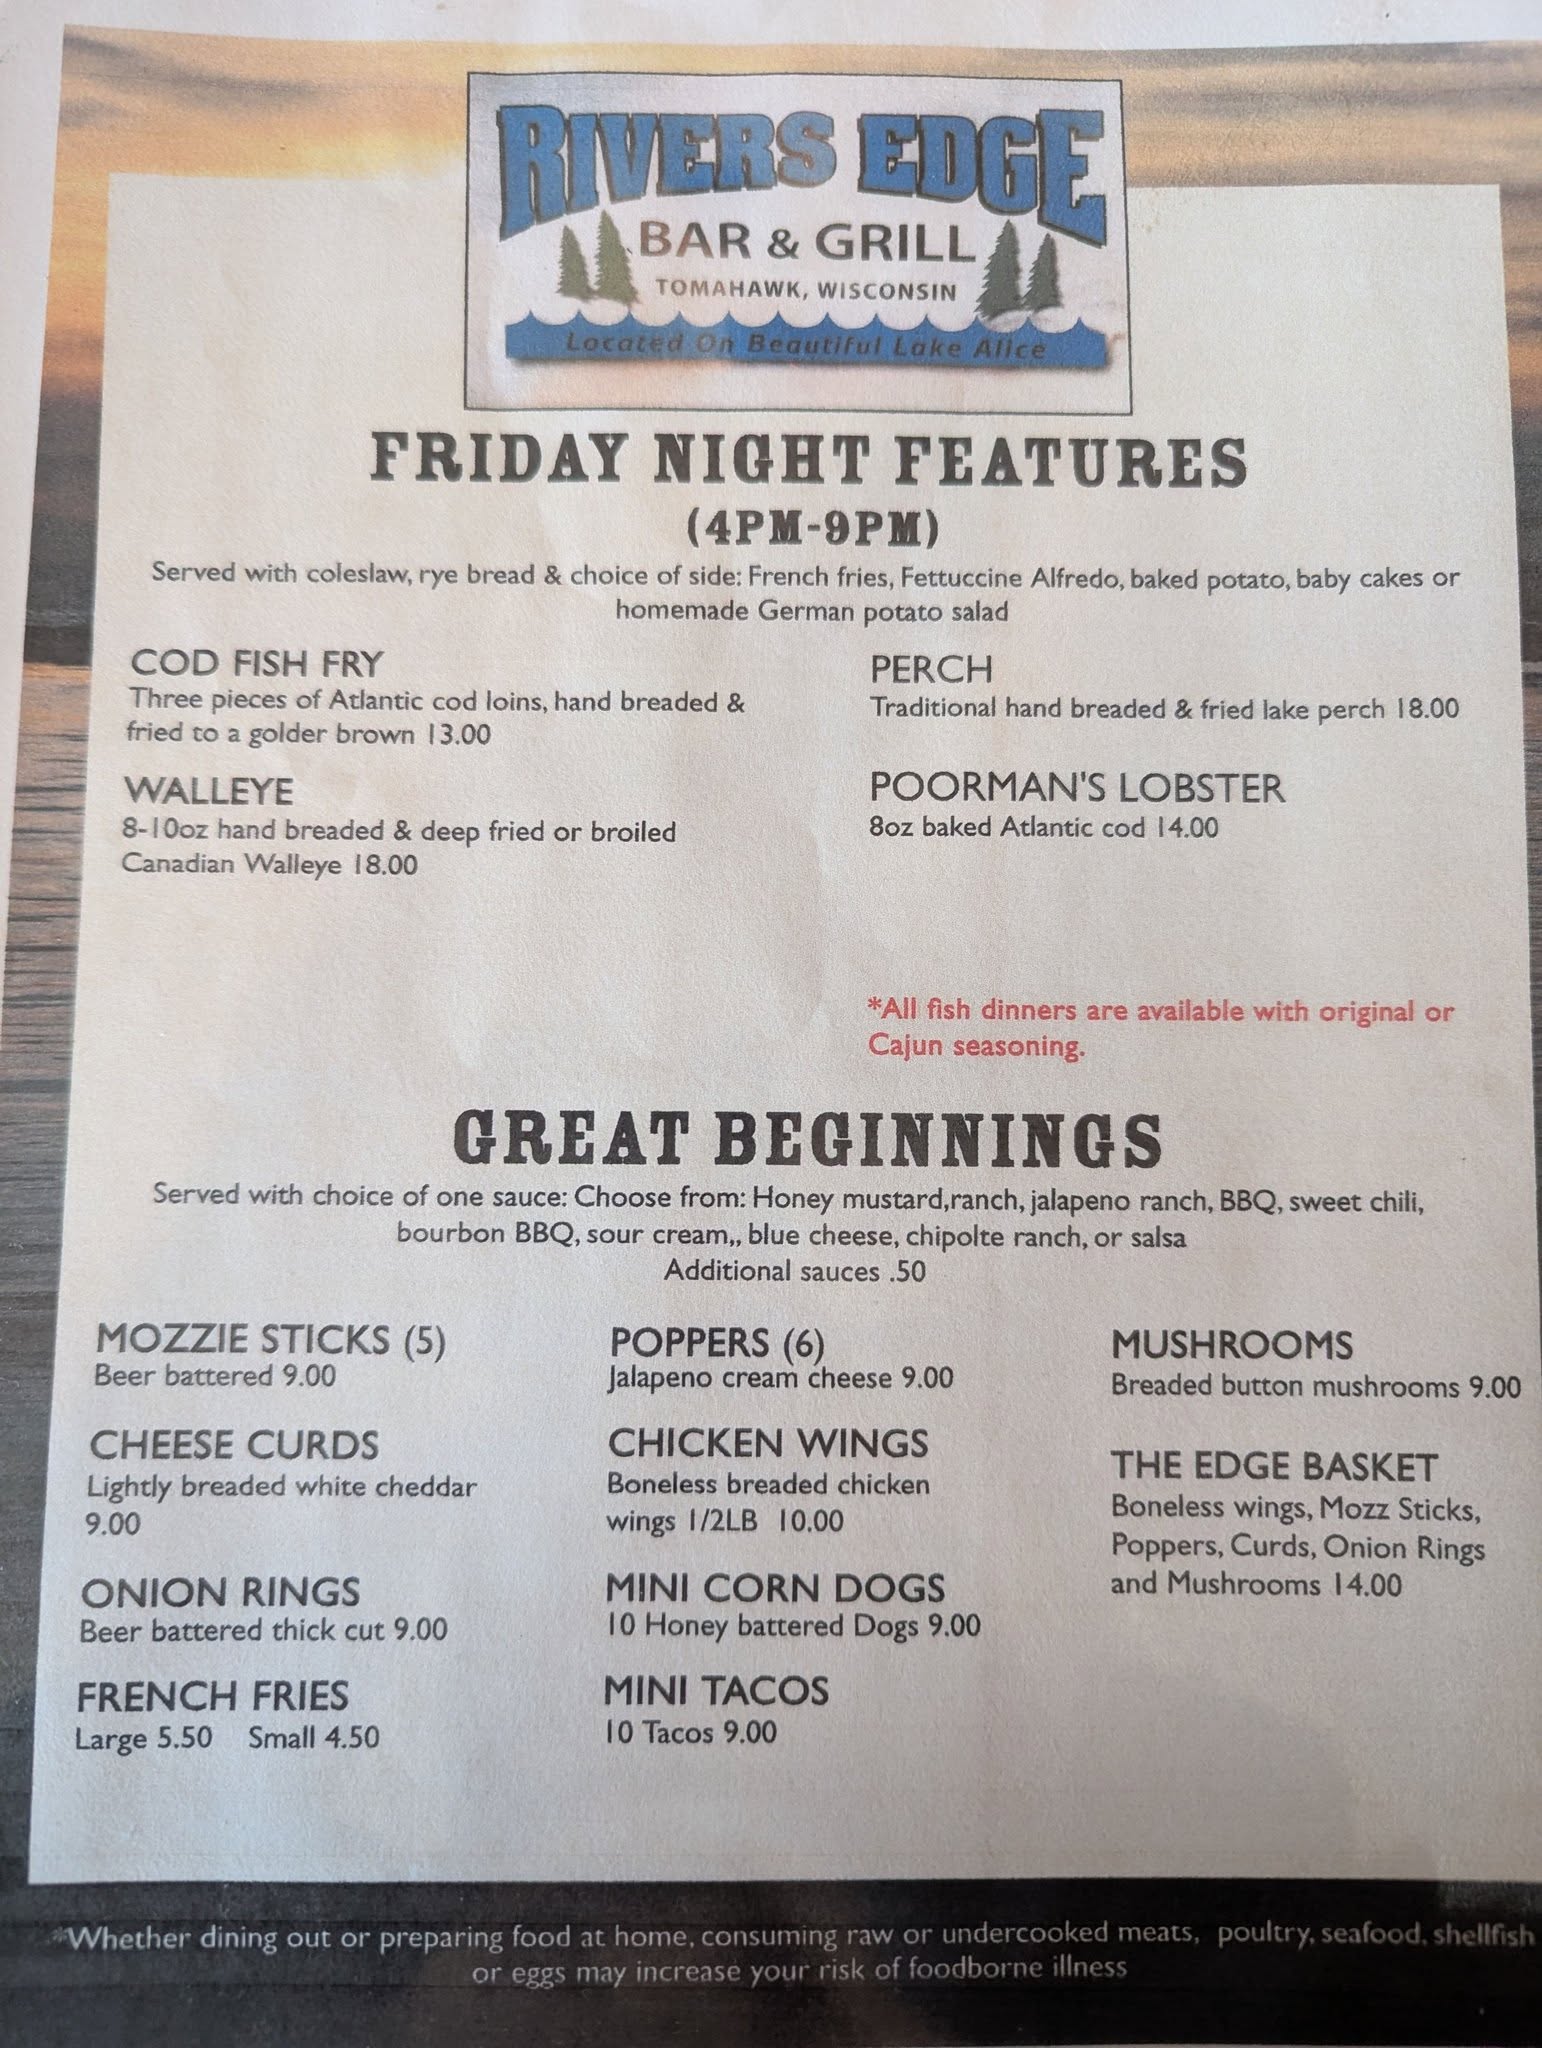 RIVERS EDGE
BAR & GRILL
TOMAHAWK, WISCONSIN
Located On Beautiful Lake Alice
FRIDAY NIGHT FEATURES
(4PM-9PM)
Served with coleslaw, rye bread & choice of side: French fries, Fettuccine Alfredo, baked potato, baby cakes or
homemade German potato salad
COD FISH FRY
Three pieces of Atlantic cod loins, hand breaded &
fried to a golder brown 13.00
WALLEYE
8-10oz hand breaded & deep fried or broiled
Canadian Walleye 18.00
PERCH
Traditional hand breaded & fried lake perch 18.00
POORMAN'S LOBSTER
8oz baked Atlantic cod 14.00
*All fish dinners are available with original or
Cajun seasoning.
GREAT BEGINNINGS
Served with choice of one sauce: Choose from: Honey mustard,ranch, jalapeno ranch, BBQ, sweet chili,
bourbon BBQ, sour cream,, blue cheese, chipolte ranch, or salsa
Additional sauces .50
MOZZIE STICKS (5)
Beer battered 9.00
CHEESE CURDS
Lightly breaded white cheddar
9.00
ONION RINGS
Beer battered thick cut 9.00
FRENCH FRIES
Large 5.50 Small 4.50
POPPERS (6)
Jalapeno cream cheese 9.00
CHICKEN WINGS
Boneless breaded chicken
wings 1/2LB 10.00
MINI CORN DOGS
10 Honey battered Dogs 9.00
MINI TACOS
10 Tacos 9.00
MUSHROOMS
Breaded button mushrooms 9.00
THE EDGE BASKET
Boneless wings, Mozz Sticks,
Poppers, Curds, Onion Rings
and Mushrooms 14.00
*Whether dining out or preparing food at home, consuming raw or undercooked meats, poultry, seafood, shellfish
or eggs may increase your risk of foodborne illness